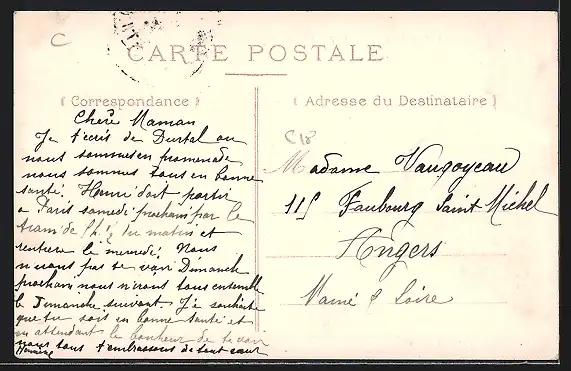 C
CARTE POSTALE
( Correspondance )
Chère Maman
Je t'écris de Durtal ou
nous sommes en promenade
nous sommes tous en bonne
santé. Henri doit partir
a Paris samedi prochain par le
tram de 8h ½ du matin et
rentrera le mercredi. Nous
n'irons pas te voir Dimanche
prochain nous n'irons tous ensemble
le Dimanche suivant Je souhaite
que tu sois en bonne santé et
en attendant le bonheur de te voir
nous tous t'embrassons de tout cœur
( Adresse du Destinataire )
C18
Madame Vaugoyeau
115 Faubourg Saint Michel
Angers
Maine & Loire